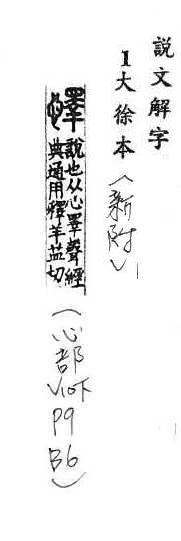 說文解字
1大徐本(新附)
懌 說也从心睪聲經
典通用釋羊益切
(心部
V10下
P9
B6)